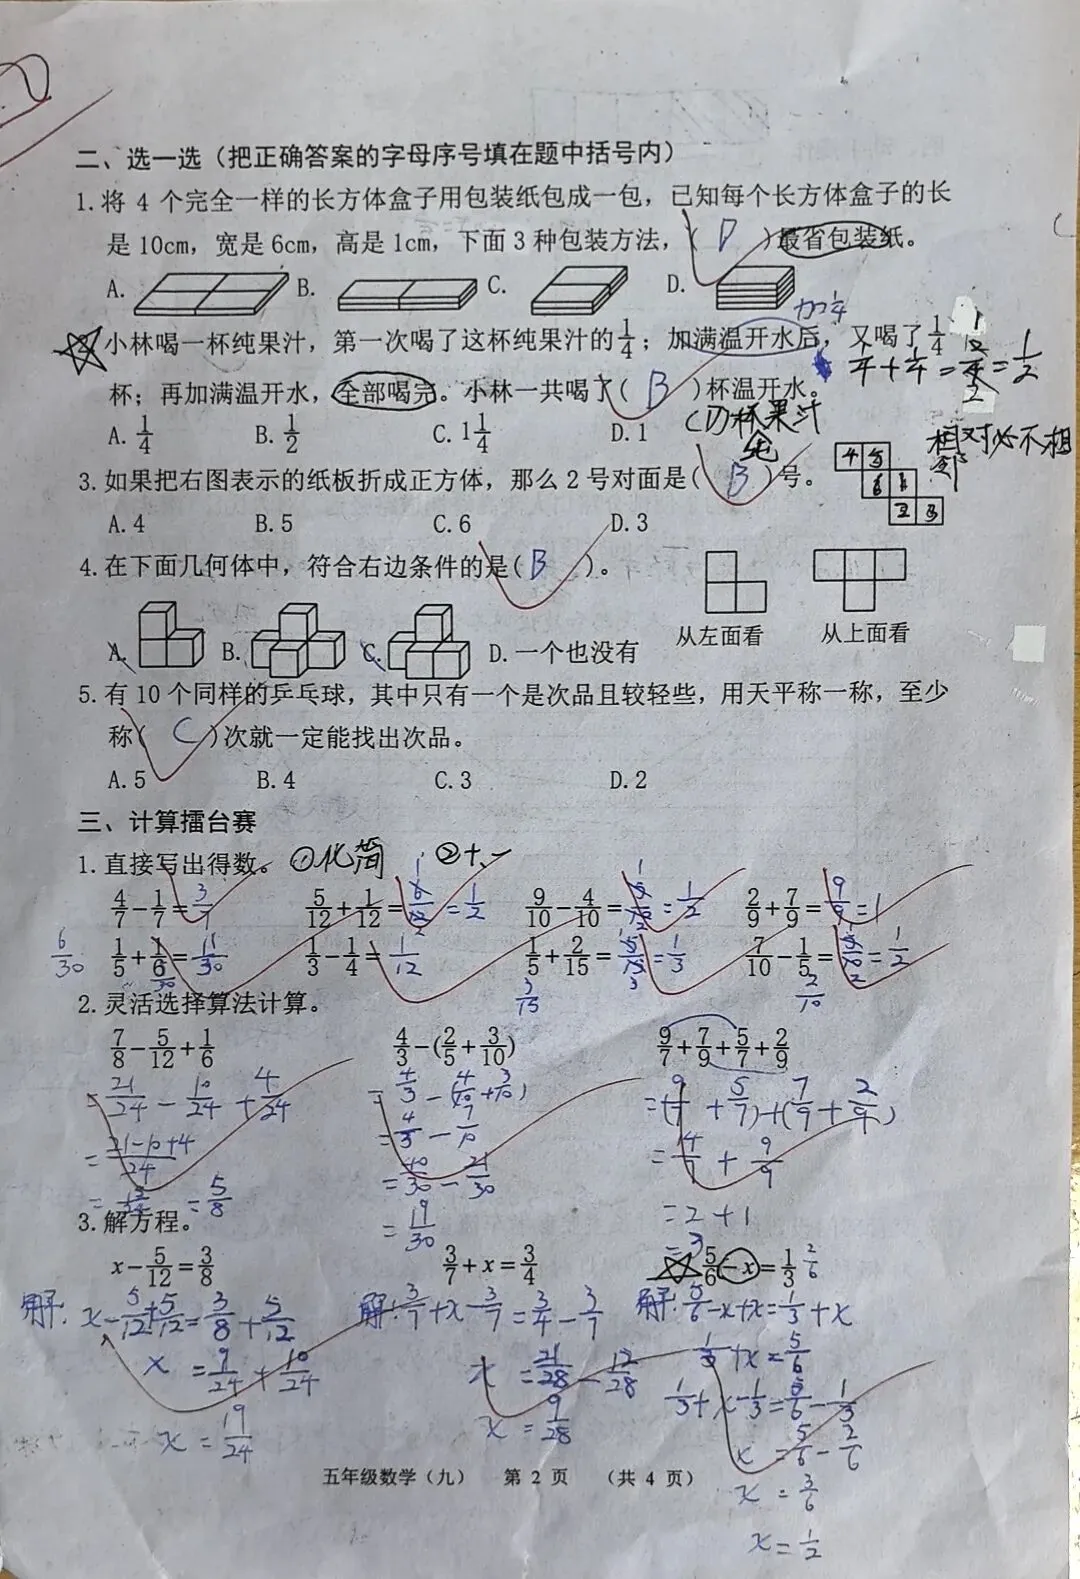 二、选一选（把正确答案的字母序号填在题中括号内）
1.将 4 个完全一样的长方体盒子用包装纸包成一包，已知每个长方体盒子的长
是10cm，宽是6cm，高是1cm，下面3种包装方法，( D )最省包装纸。
A. B. C. D.
加1/4
小林喝一杯纯果汁，第一次喝了这杯纯果汁的1/4；加满温开水后，又喝了1/4
杯；再加满温开水，全部喝完。小林一共喝了( B )杯温开水。
1/4+1/4=2/4=1/2
A.1/4 B.1/2 C.1 1/4 D.1
(1)杯果汁
纯
相对必不相
邻
3.如果把右图表示的纸板折成正方体，那么2号对面是( B )号。
4 5
6 1
2 3
A.4 B.5 C.6 D.3
4.在下面几何体中，符合右边条件的是( B )。
从左面看 从上面看
A. B. C. D.一个也没有
5.有10个同样的乒乓球，其中只有一个是次品且较轻些，用天平称一称，至少
称( C )次就一定能找出次品。
A.5 B.4 C.3 D.2
三、计算擂台赛
1.直接写出得数。 ①化简 ②+、-
4/7-1/7=3/7 5/12+1/12=6/12=1/2 9/10-4/10=5/10=1/2 2/9+7/9=9/9=1
6/30 1/5+1/6=11/30 1/3-1/4=1/12 1/5+2/15=5/15=1/3 7/10-1/5=5/10=1/2
5/30 3/15 2/10
2.灵活选择算法计算。
7/8-5/12+1/6 4/3-(2/5+3/10) 9/7+7/9+5/7+2/9
=21/24-10/24+4/24 =4/3-(4/10+3/10) =(9/7+5/7)+(7/9+2/9)
=21-10+4/24 =4/3-7/10 =14/7+9/9
=15/24=5/8 =40/30-21/30 =2+1
=19/30 =3
3.解方程。
x-5/12=3/8 3/7+x=3/4 5/6-x=1/3 2/6
解:x-5/12+5/12=3/8+5/12 解:3/7+x-3/7=3/4-3/7 解:5/6-x+x=1/3+x
x=9/24+10/24 x=21/28-12/28 1/3+x=5/6
x=19/24 x=9/28 1/3+x-1/3=5/6-1/3
x=5/6-2/6
五年级数学（九） 第 2 页 （共 4 页）
x=3/6
x=1/2